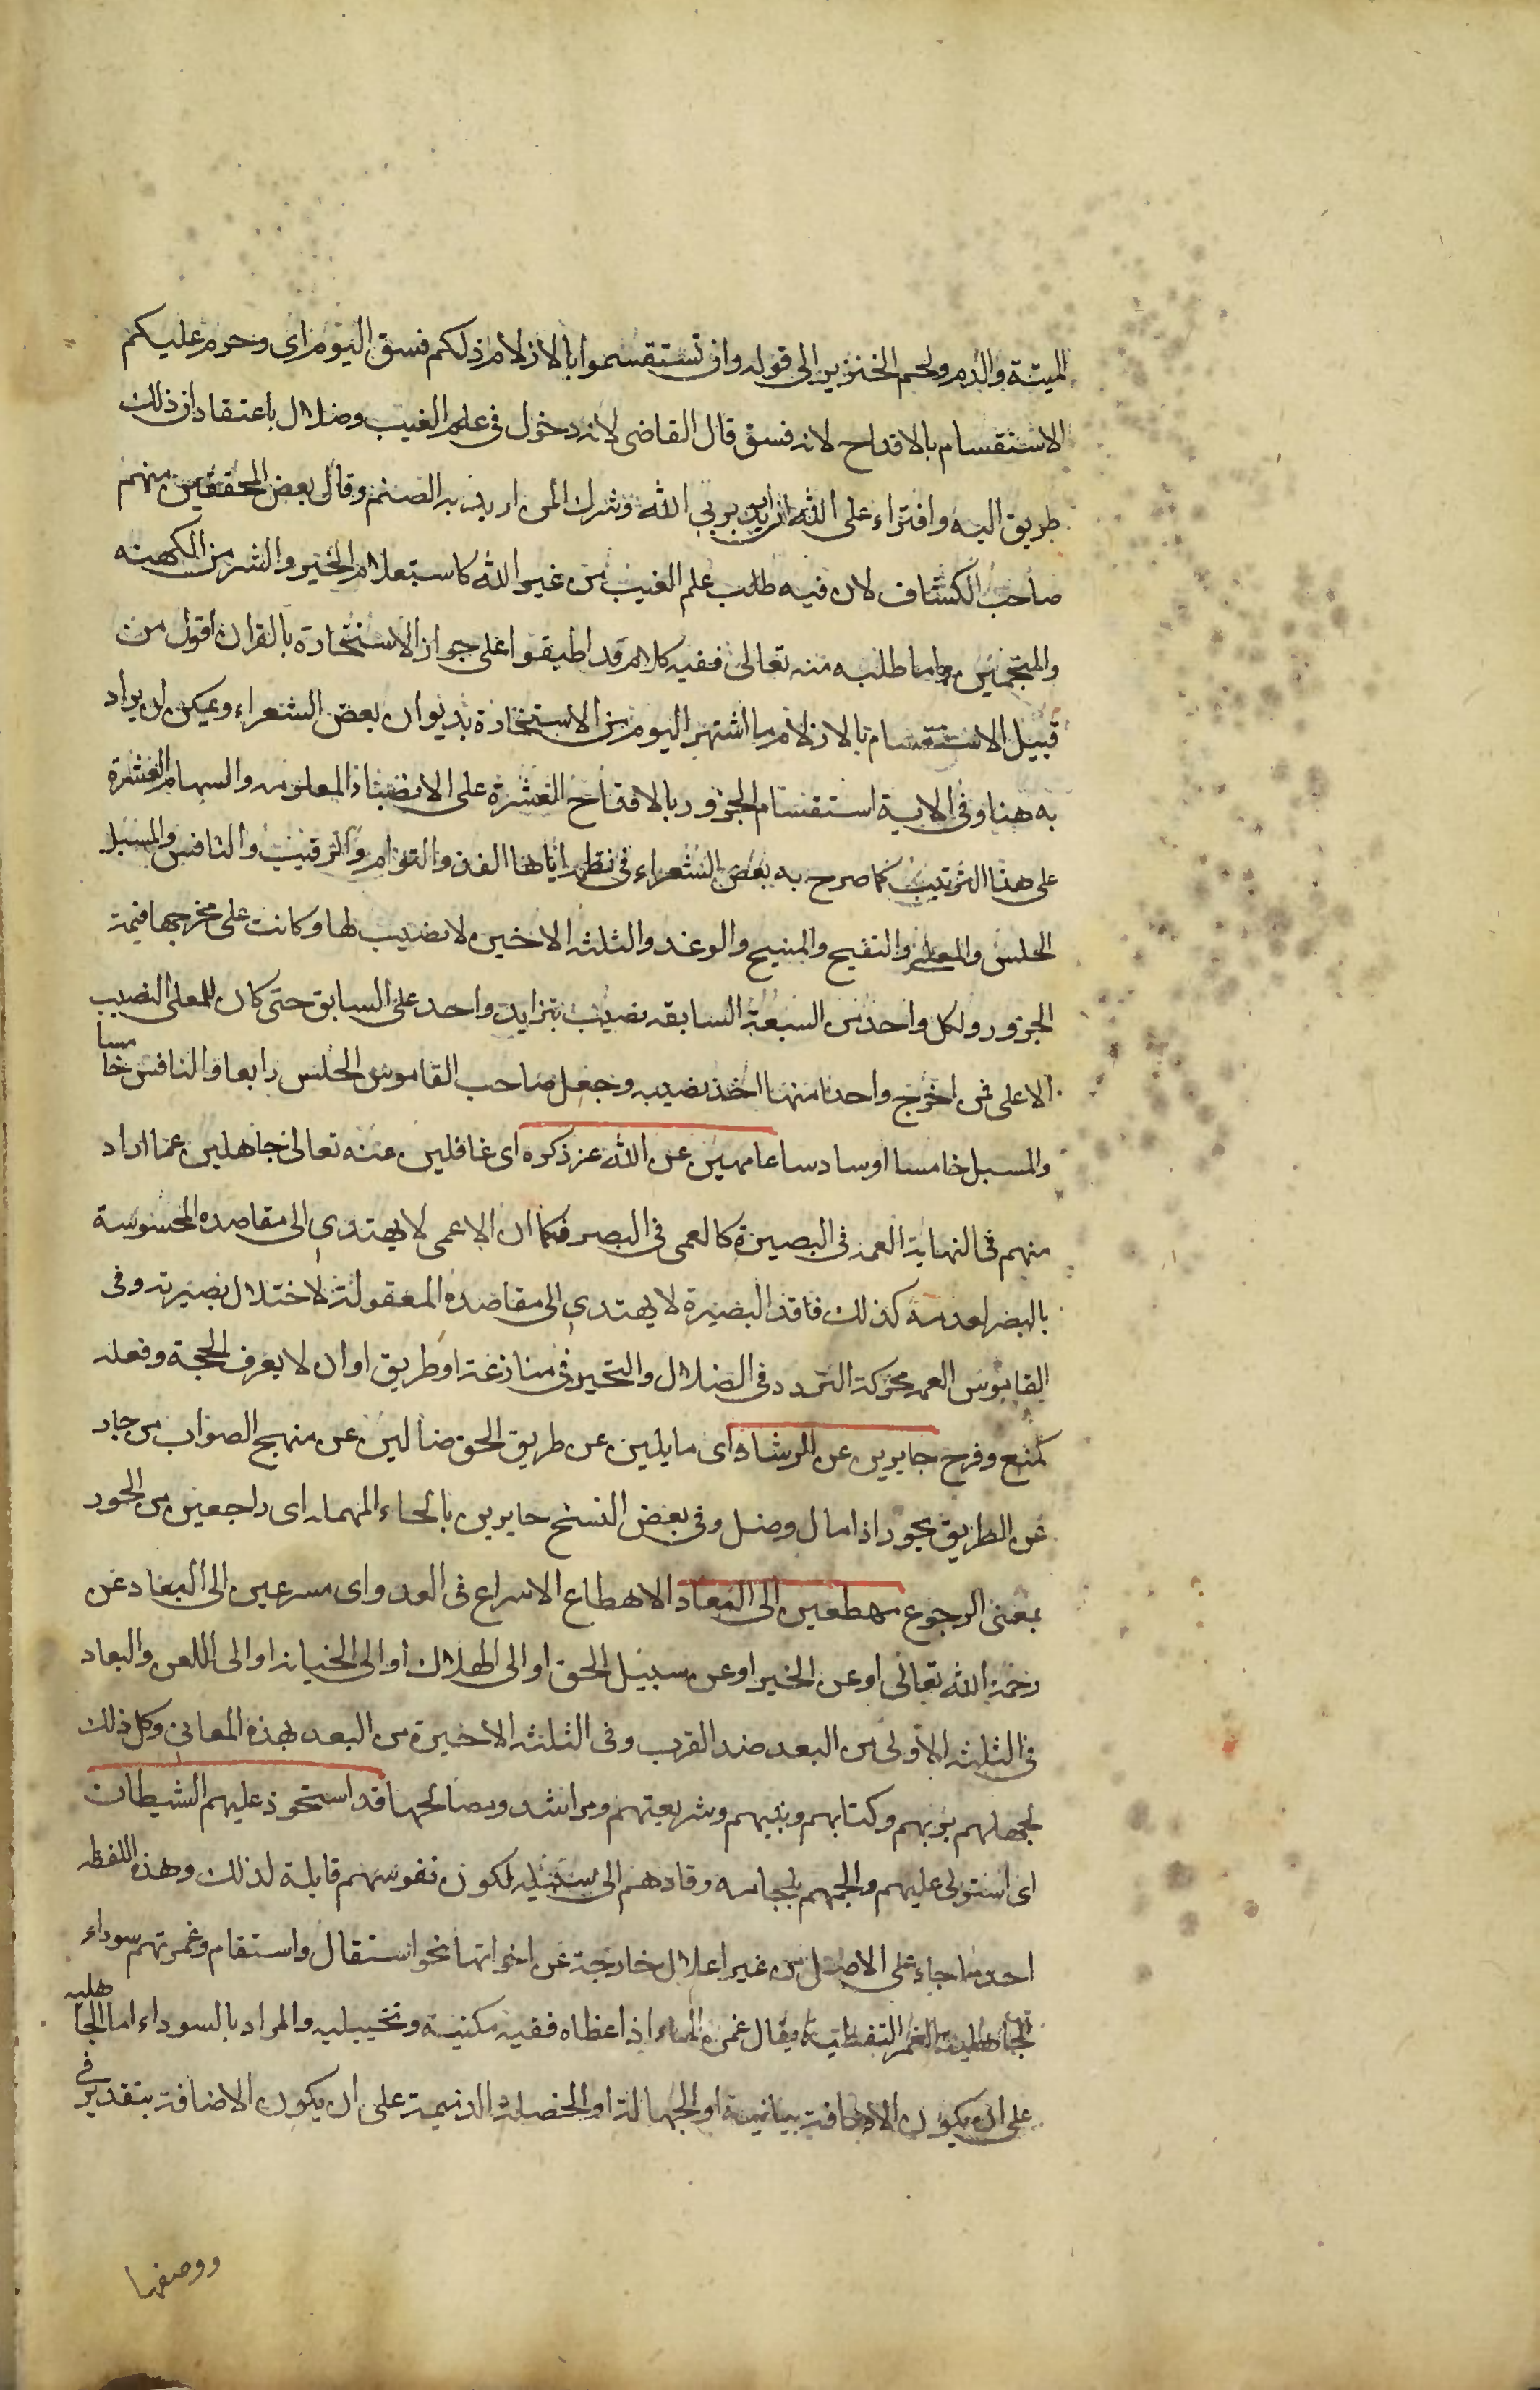 الميتة والدم ولحم الخنزير الى قوله وان تستقسموا بالازلام ذلكم فسق اليوم اى وحرم عليكم
الاستقسام بالاقداح لانه فسق قال القاضى لانه دخول فى علم الغيب وضلال باعتقاد ان ذلك
طريق اليه وافتراء على الله ان اريد بربي الله وشرك ان اريد به الصنم وقال بعض المحققين منهم
صاحب الكشاف لان فيه طلب علم الغيب من غير الله كاستعلام الخير والشر من الكهنه
والمنجمين واما طلبه منه تعالى ففيه كلام قد اطبقوا على جواز الاستخارة بالقران اقول من
قبيل الاستقسام بالازلام ما اشتهر اليوم من الاستخارة بديوان بعض الشعراء ويمكن ان يراد
به هنا وفى الاية استقسام الجزور بالاقداح العشرة على الانصباء المعلومه والسهام العشرة
على هذا الترتيب كما صرح به بعض الشعراء فى نظم اياها الفذ والتوام والرقيب والنافس والمسبل
الحلس والمعلى والسفيح والمنيح والوغد والثلثه الاخيره لا نصيب لها وكانت على مخرجها قيمة
الجزور ولكل واحد من السبعة السابقه نصيب بتزايد واحد على السابق حتى كان للمعلى النصيب
الاعلى فمن اخرج واحدا منها اخذ نصيبه وجعل صاحب القاموس الحلس رابعا والنافس خامسا
والمسبل خامسا اوسادسا عامهين عن الله عز ذكره اى غافلين عنه تعالى جاهلين عما اراد
منهم فى النهاية العمه فى البصيرة كالعمى فى البصر فكما ان الاعمى لا يهتدي الى مقاصده المحسوسة
بالبصر لعدمه كذلك فاقد البصيرة لا يهتدي الى مقاصده المعقولة لاختلال بصيرته وفى
القاموس العمه محركة التردد فى الضلال والتحير فى منازعة او طريق او ان لا يعرف الحجة وفعله
كمنع وفرح جايرين عن الرشاد اى مايلين عن طريق الحق ضالين عن منهج الصواب من جار
عن الطريق يجور اذا مال وضل وفى بعض النسخ حايرين بالحاء المهمله اى راجعين من الحور
بمعنى الرجوع مهطعين الى البعاد الاهطاع الاسراع فى العدو اى مسرعين الى البعاد عن
رحمة الله تعالى او عن الخير او عن سبيل الحق او الى الهلاك او الى الخيانه او الى اللعن والبعاد
فى الثلثه الاولى من البعد ضد القرب وفى الثلثه الاخيرة من البعد بهذه المعاني وكل ذلك
لجهلهم بربهم وكتابهم ونبيهم وشريعتهم ومراشد ومصالحها قد استحوذ عليهم الشيطان
اى استولى عليهم والجمهم بلجامه وقادهم الى سبيله لكون نفوسهم قابلة لذلك وهذه اللفظه
احد ما جاء على الاصل من غير اعلال خارجة عن اخواتها نحو استقال واستقام وغمرتهم سوداء
الجاهلية الغمر التغطية يقال غمره الماء اذا غطاه ففيه مكنية وتخييليه والمراد بالسوداء اما الجاهليه
على ان يكون الاضافة بيانية او الجهالة او الخصلة الذميمة على ان يكون الاضافة بتقدير فى
ووصفها